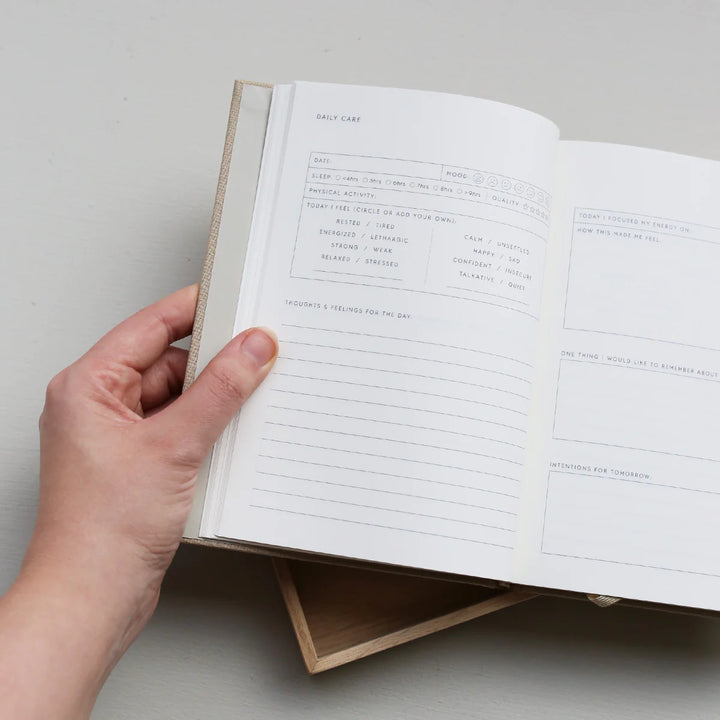 DAILY CARE
DATE: MOOD:
SLEEP: <4hrs 5hrs 6hrs 7hrs 8hrs >9hrs QUALITY
PHYSICAL ACTIVITY:
TODAY I FEEL (CIRCLE OR ADD YOUR OWN):
RESTED / TIRED
ENERGIZED / LETHARGIC
STRONG / WEAK
RELAXED / STRESSED
CALM / UNSETTLED
HAPPY / SAD
CONFIDENT / INSECURE
TALKATIVE / QUIET
THOUGHTS & FEELINGS FOR THE DAY:
TODAY I FOCUSED MY ENERGY ON:
HOW THIS MADE ME FEEL:
ONE THING I WOULD LIKE TO REMEMBER ABOUT
INTENTIONS FOR TOMORROW: